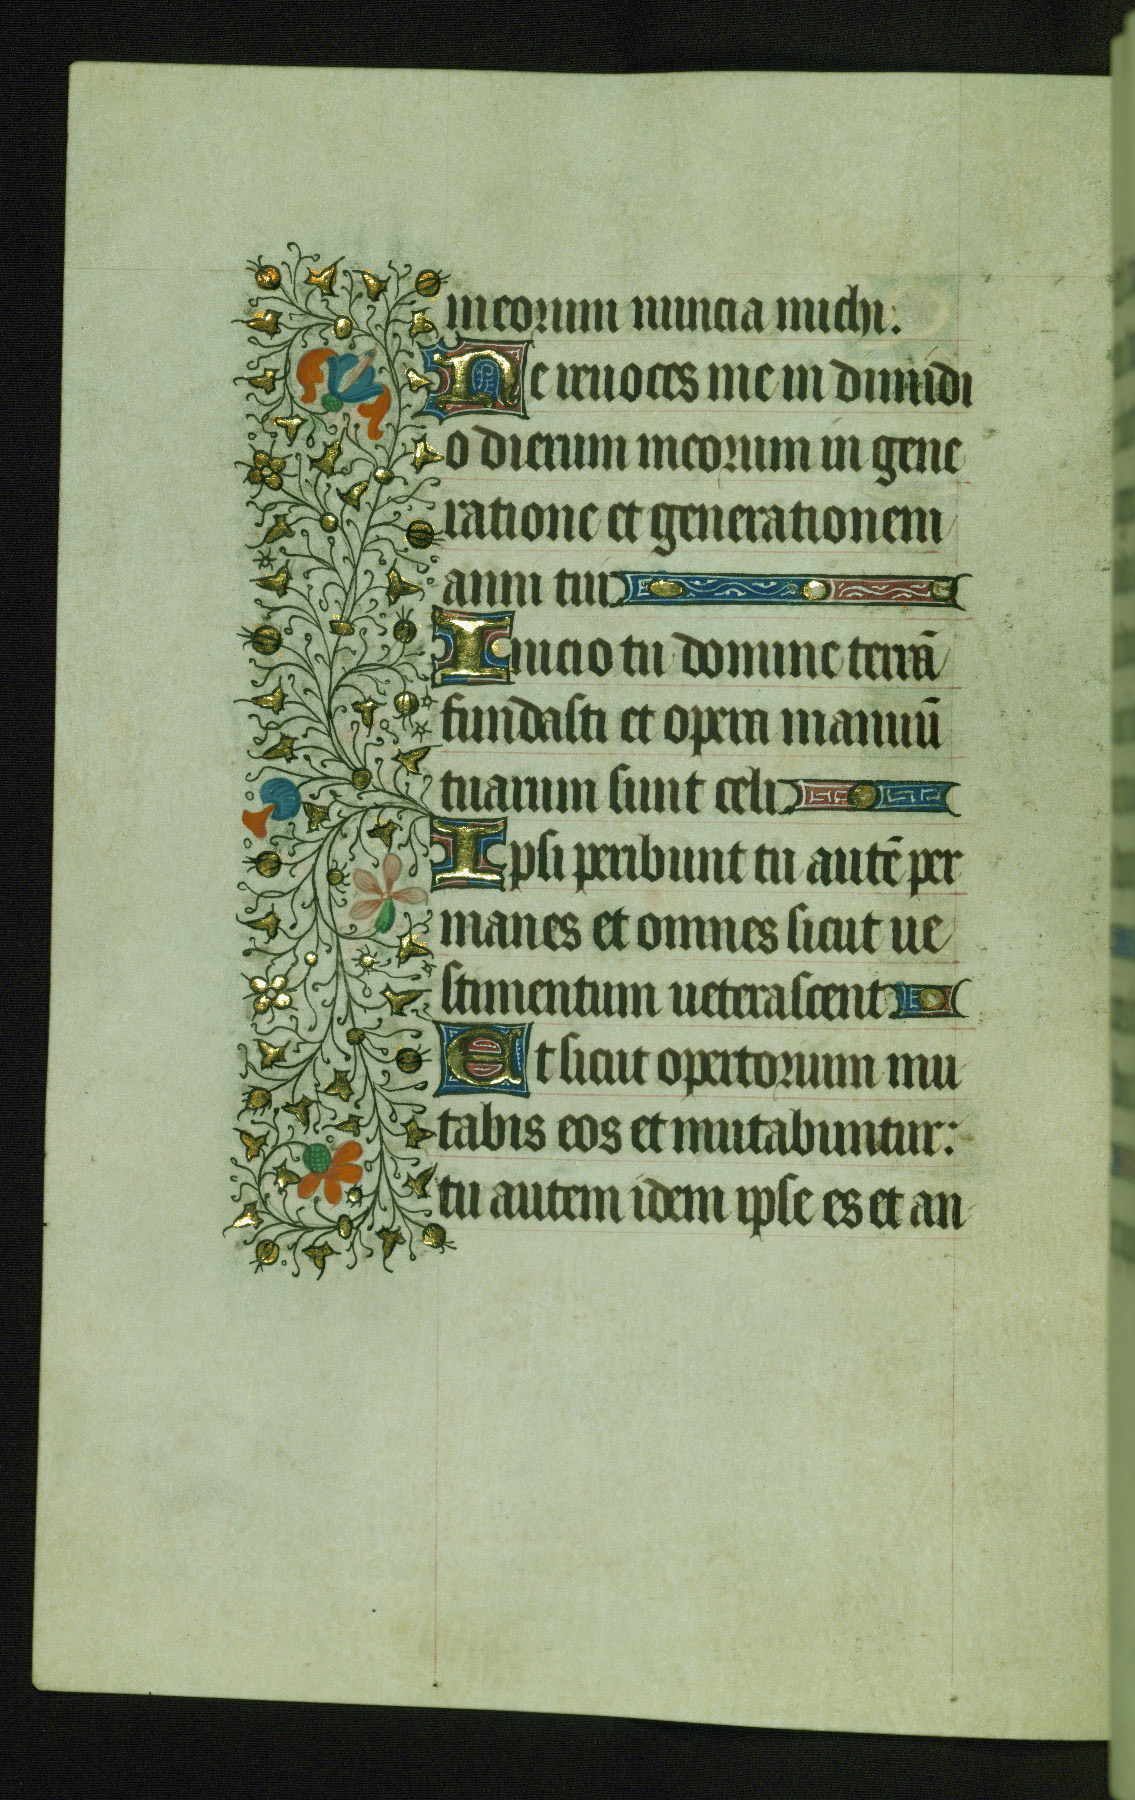 meorum nuncia michi.
Ne reuoces me in dimidi
o dierum meorum in gene
ratione et generationem
anni tui
Inicio tu domine terrā
fundasti et opera manuū
tuarum sunt celi
Ipsi peribunt tu autē per
manes et omnes sicut ue
stimentum ueterascent
Et sicut opertorium mu
tabis eos et mutabuntur:
tu autem idem ipse es et an